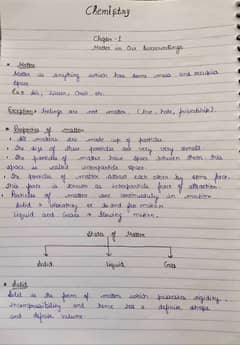 Chemistry
Chapter - 1
Matter in Our Surroundings
Matter
Matter is anything which has some mass and occupies
space
Ex: Air, Water, Chair etc.
Exception: feelings are not matter. (love, hate, friendship).
Properties of matter
All matters are made up of particles
The size of these particles are very very small.
The particles of matter have space between them this
space is called interparticle space.
The particles of matter attract each other by some force.
This force is known as interparticle force of attraction.
Particles of matter are continuously in motion
Solid = vibratory or to and fro motion
Liquid and Gases = flowing motion.
States of Matter
Solid Liquid Gas
Solid
Solid is the form of matter which possesses rigidity,
incompressibility and hence has a definite shape
and definite volume.